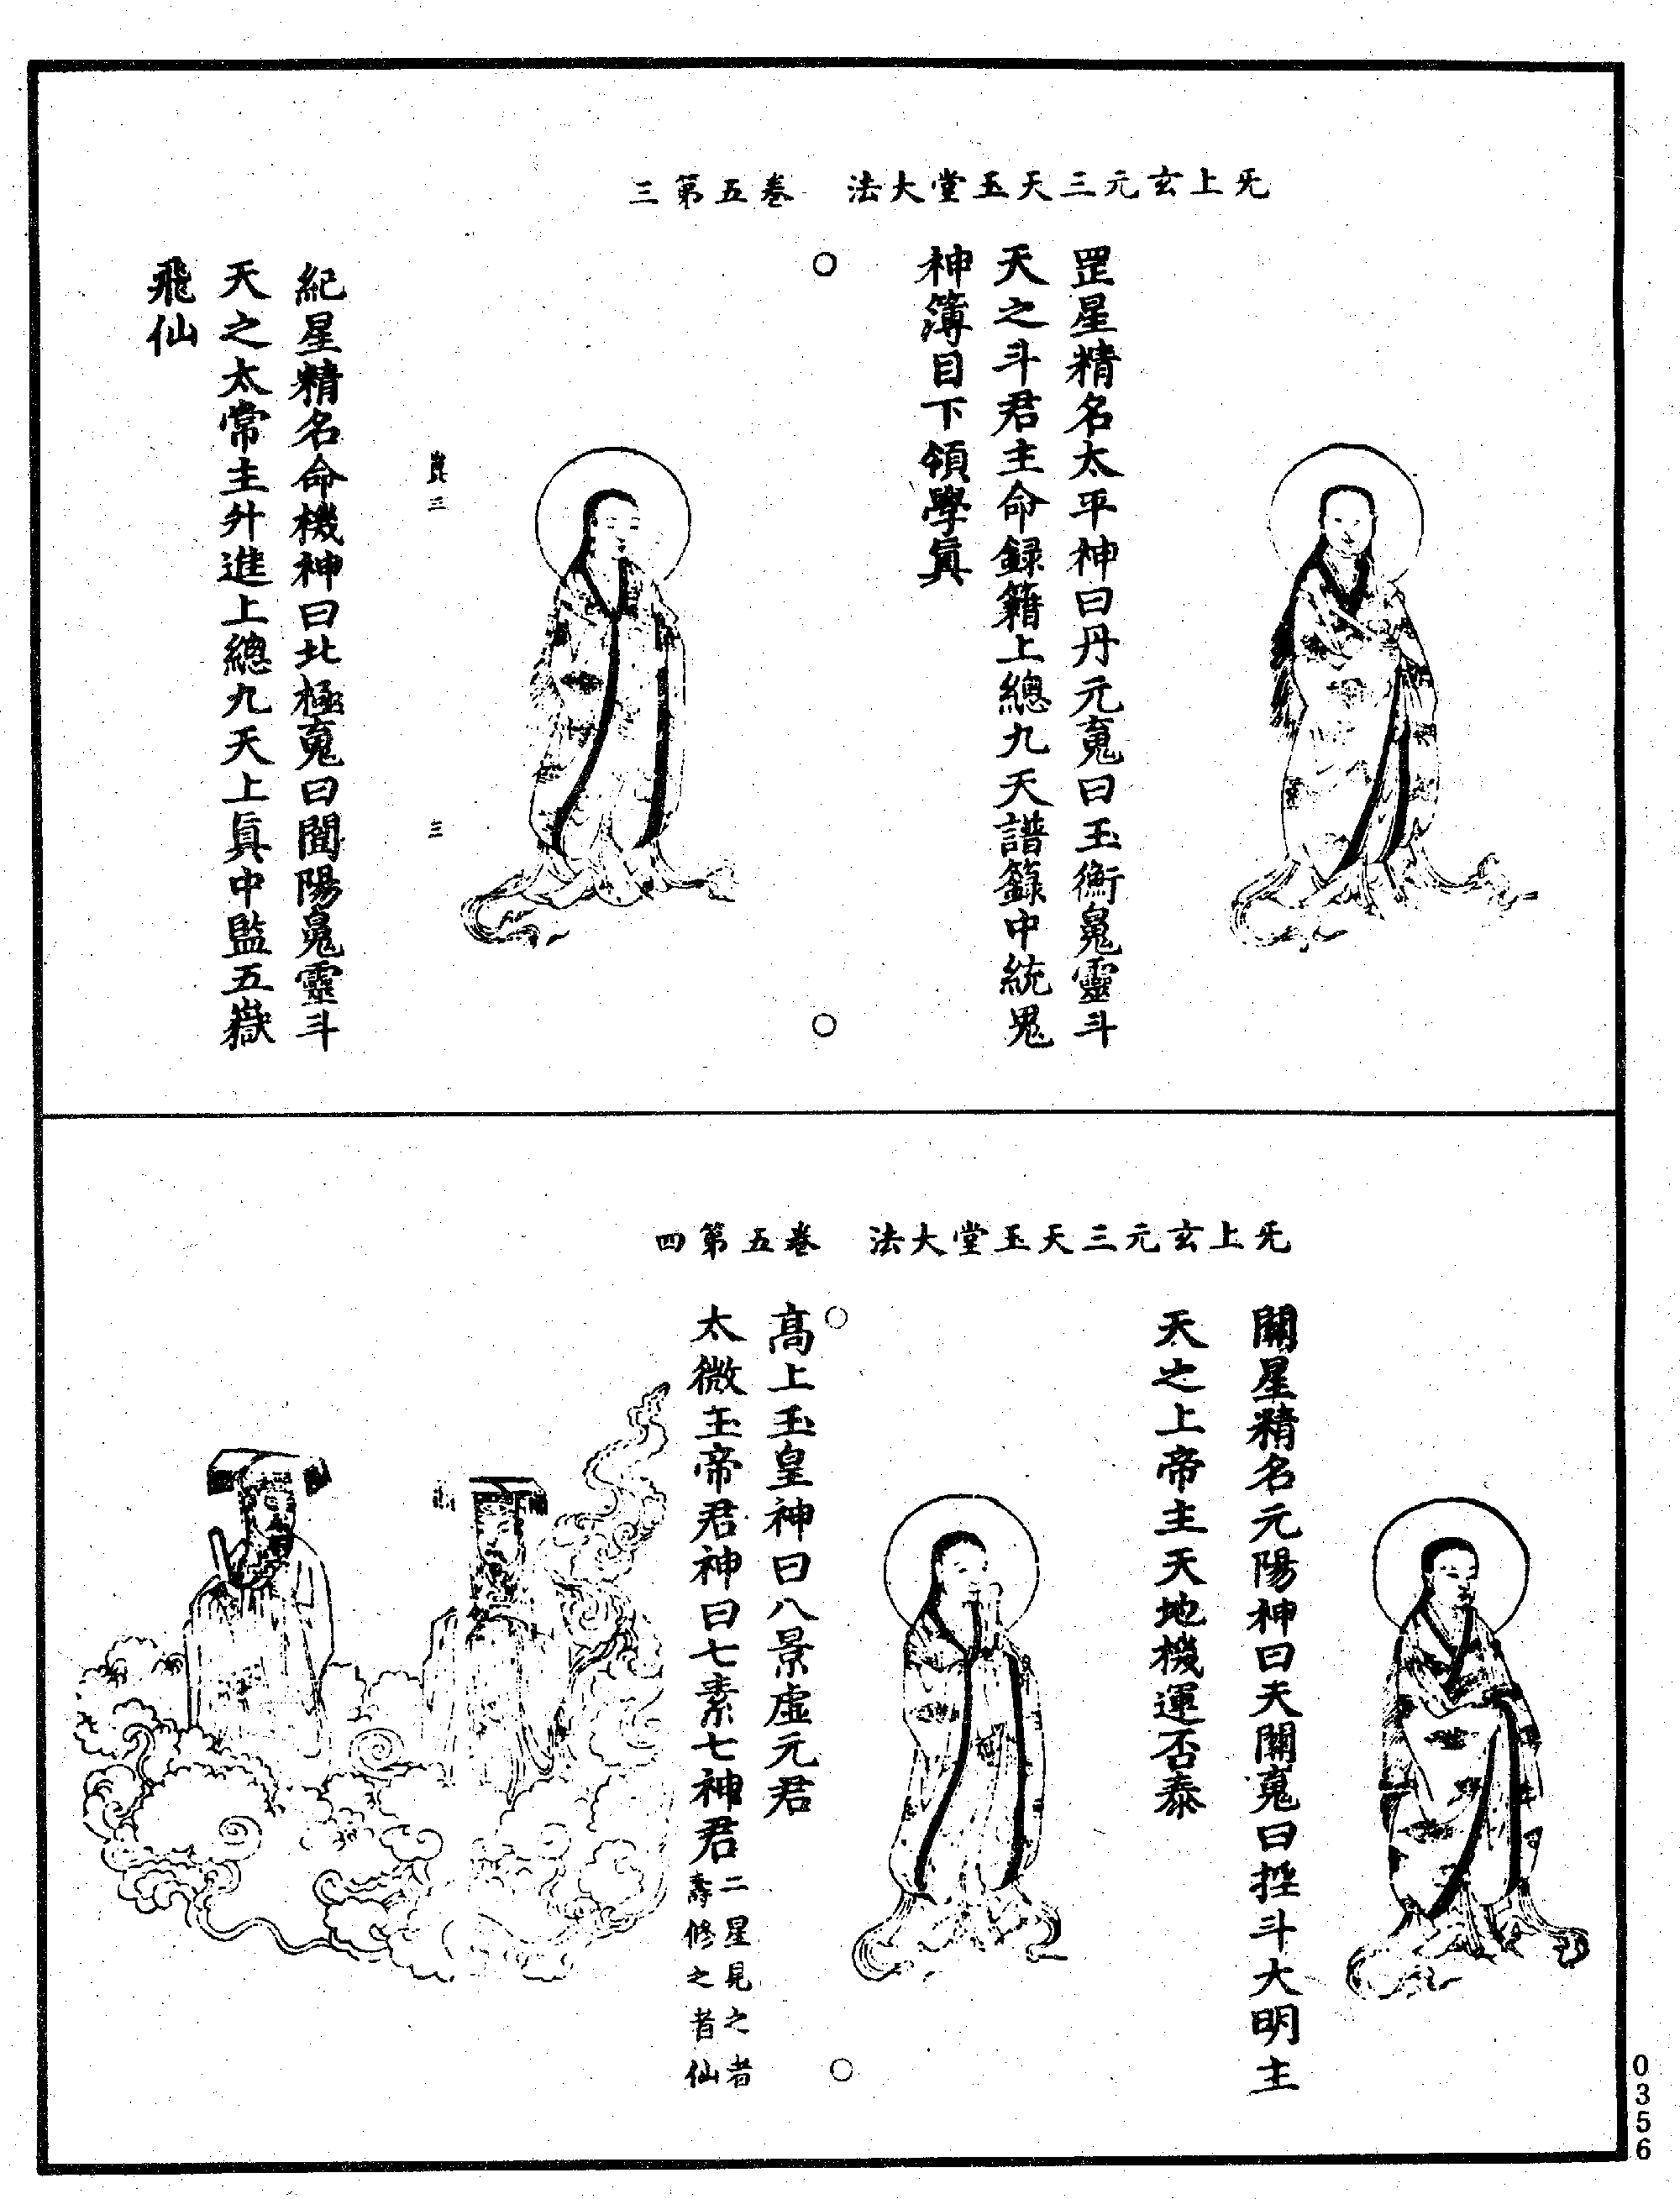 旡上玄元三天玉堂大法　卷五第三
罡星精名太平神曰丹元䰟曰玉衡鬼靈斗
天之斗君主命録籍上總九天譜籙中統鬼
神簿目下領學眞
三
三
紀星精名命機神曰北極䰟曰闓陽鬼靈斗
天之太常主升進上總九天上眞中監五嶽
飛仙
旡上玄元三天玉堂大法　卷五第四
關星精名元陽神曰天關䰟曰斗大明主
天之上帝主天地機運否泰
高上玉皇神曰八景虚元君
太微玉帝君神曰七素七神君二星見之者
壽修之者仙
0356